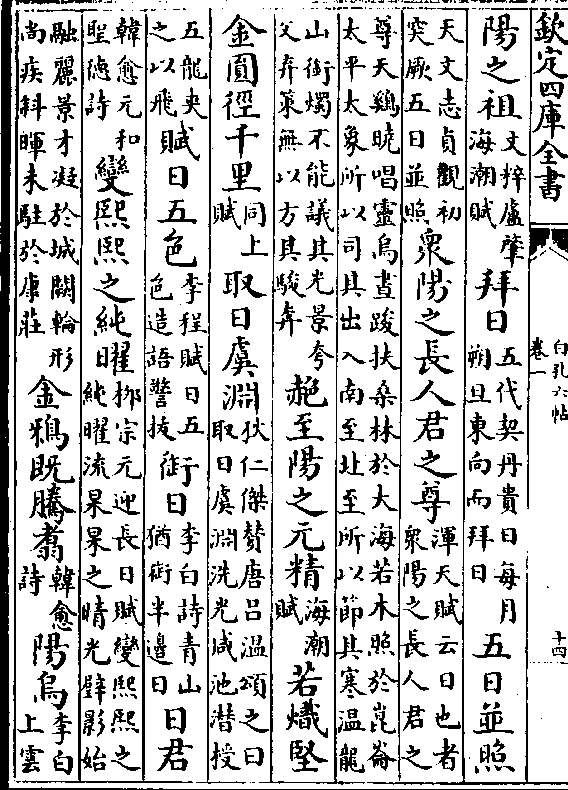 欽定四庫全書
白孔六帖
卷一
十四
陽之祖文粹盧肇海潮賦拜日五代契丹貴日每月朔旦東向而拜日五日並照
天文志貞觀初突厥五日並照衆陽之長人君之尊渾天賦云日也者衆陽之長人君之
尊天鷄曉唱靈烏晝踆扶桑林於大海若木照於崑崙太平太象所以司其出入南至北至所以節其寒温龍
山銜燭不能議其光景夸父弃策無以方其駿奔赩至陽之元精海潮賦若熾堅
金圓徑千里同上賦取日虞淵狄仁傑賛唐吕温頌之曰取日虞淵洗光咸池潜授
五龍夾之以飛賦日五色李程賦日五色造語警拔銜日李白詩青山猶銜半邊日日君
韓愈元和聖德詩變熙熙之純曜栁宗元迎長日賦變熙熙之純曜流杲杲之晴光壁影始
融麗景才凝於城闕輪形尚疾斜暉未駐於康莊金鴉既騰翥韓愈詩陽烏李白上雲